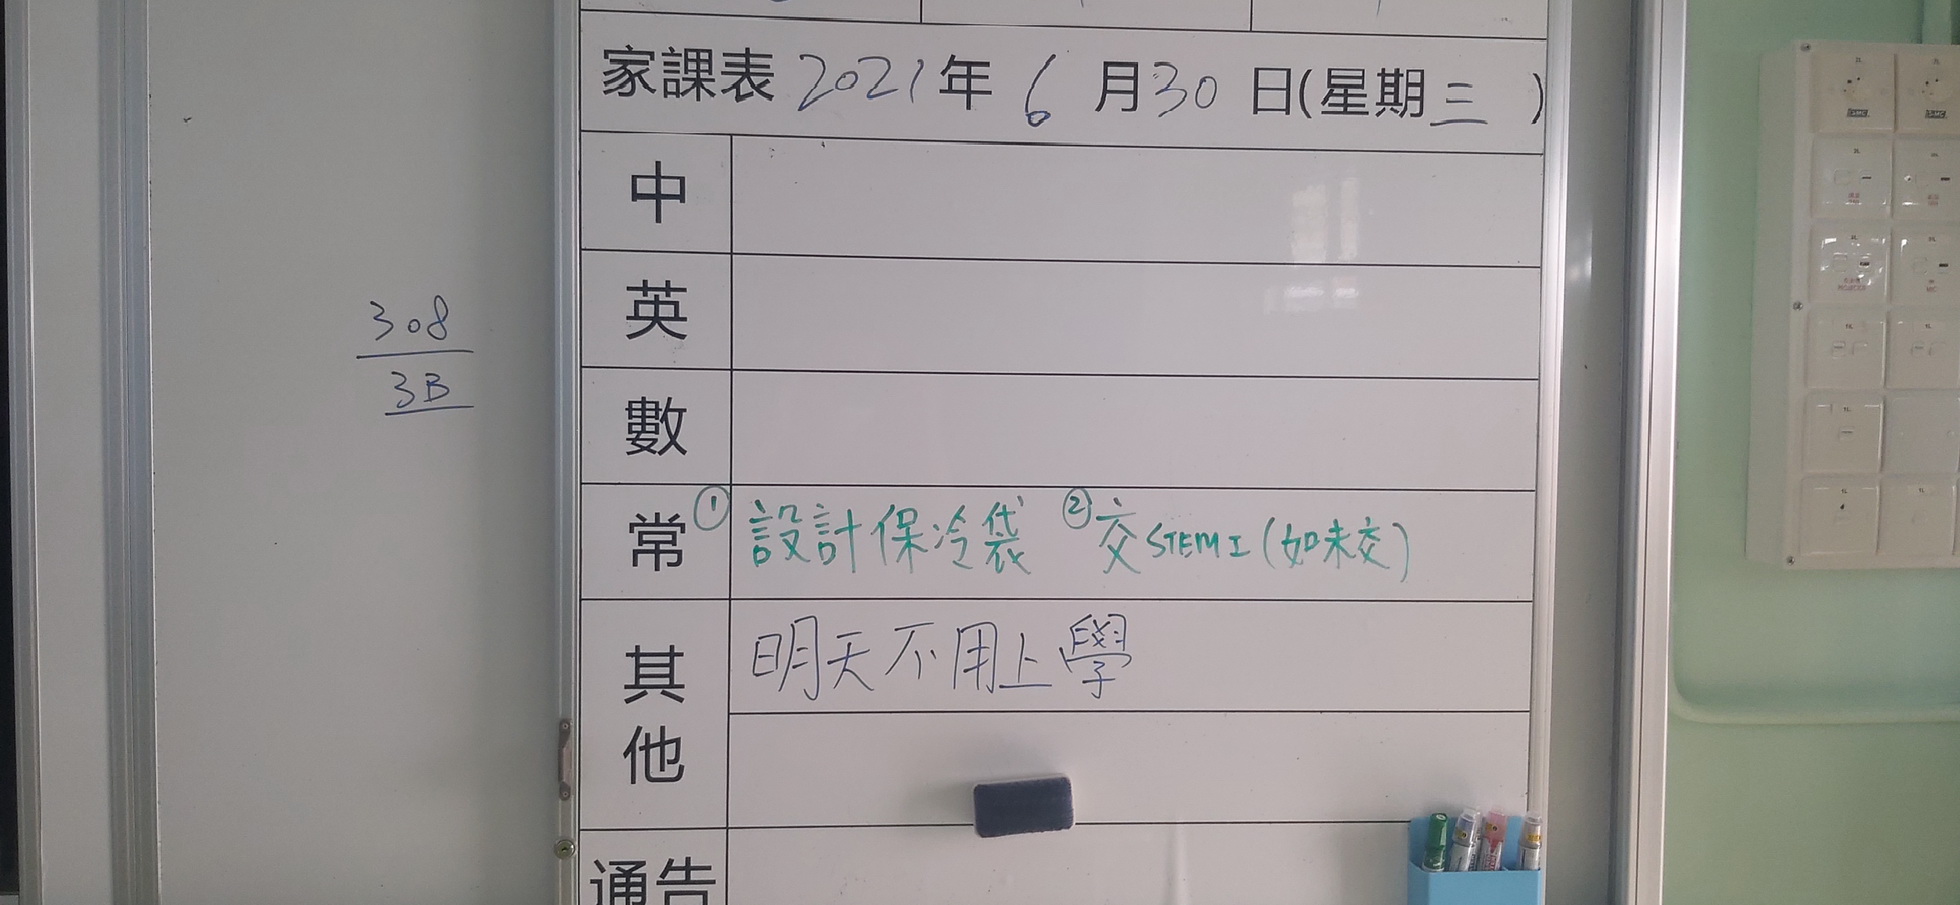 家課表 2021年 6 月 30 日(星期三 )
308
3B
中
英
數
常 ① 設計保冷袋 ② 交STEM I (如未交)
其他 明天不用上學
通告